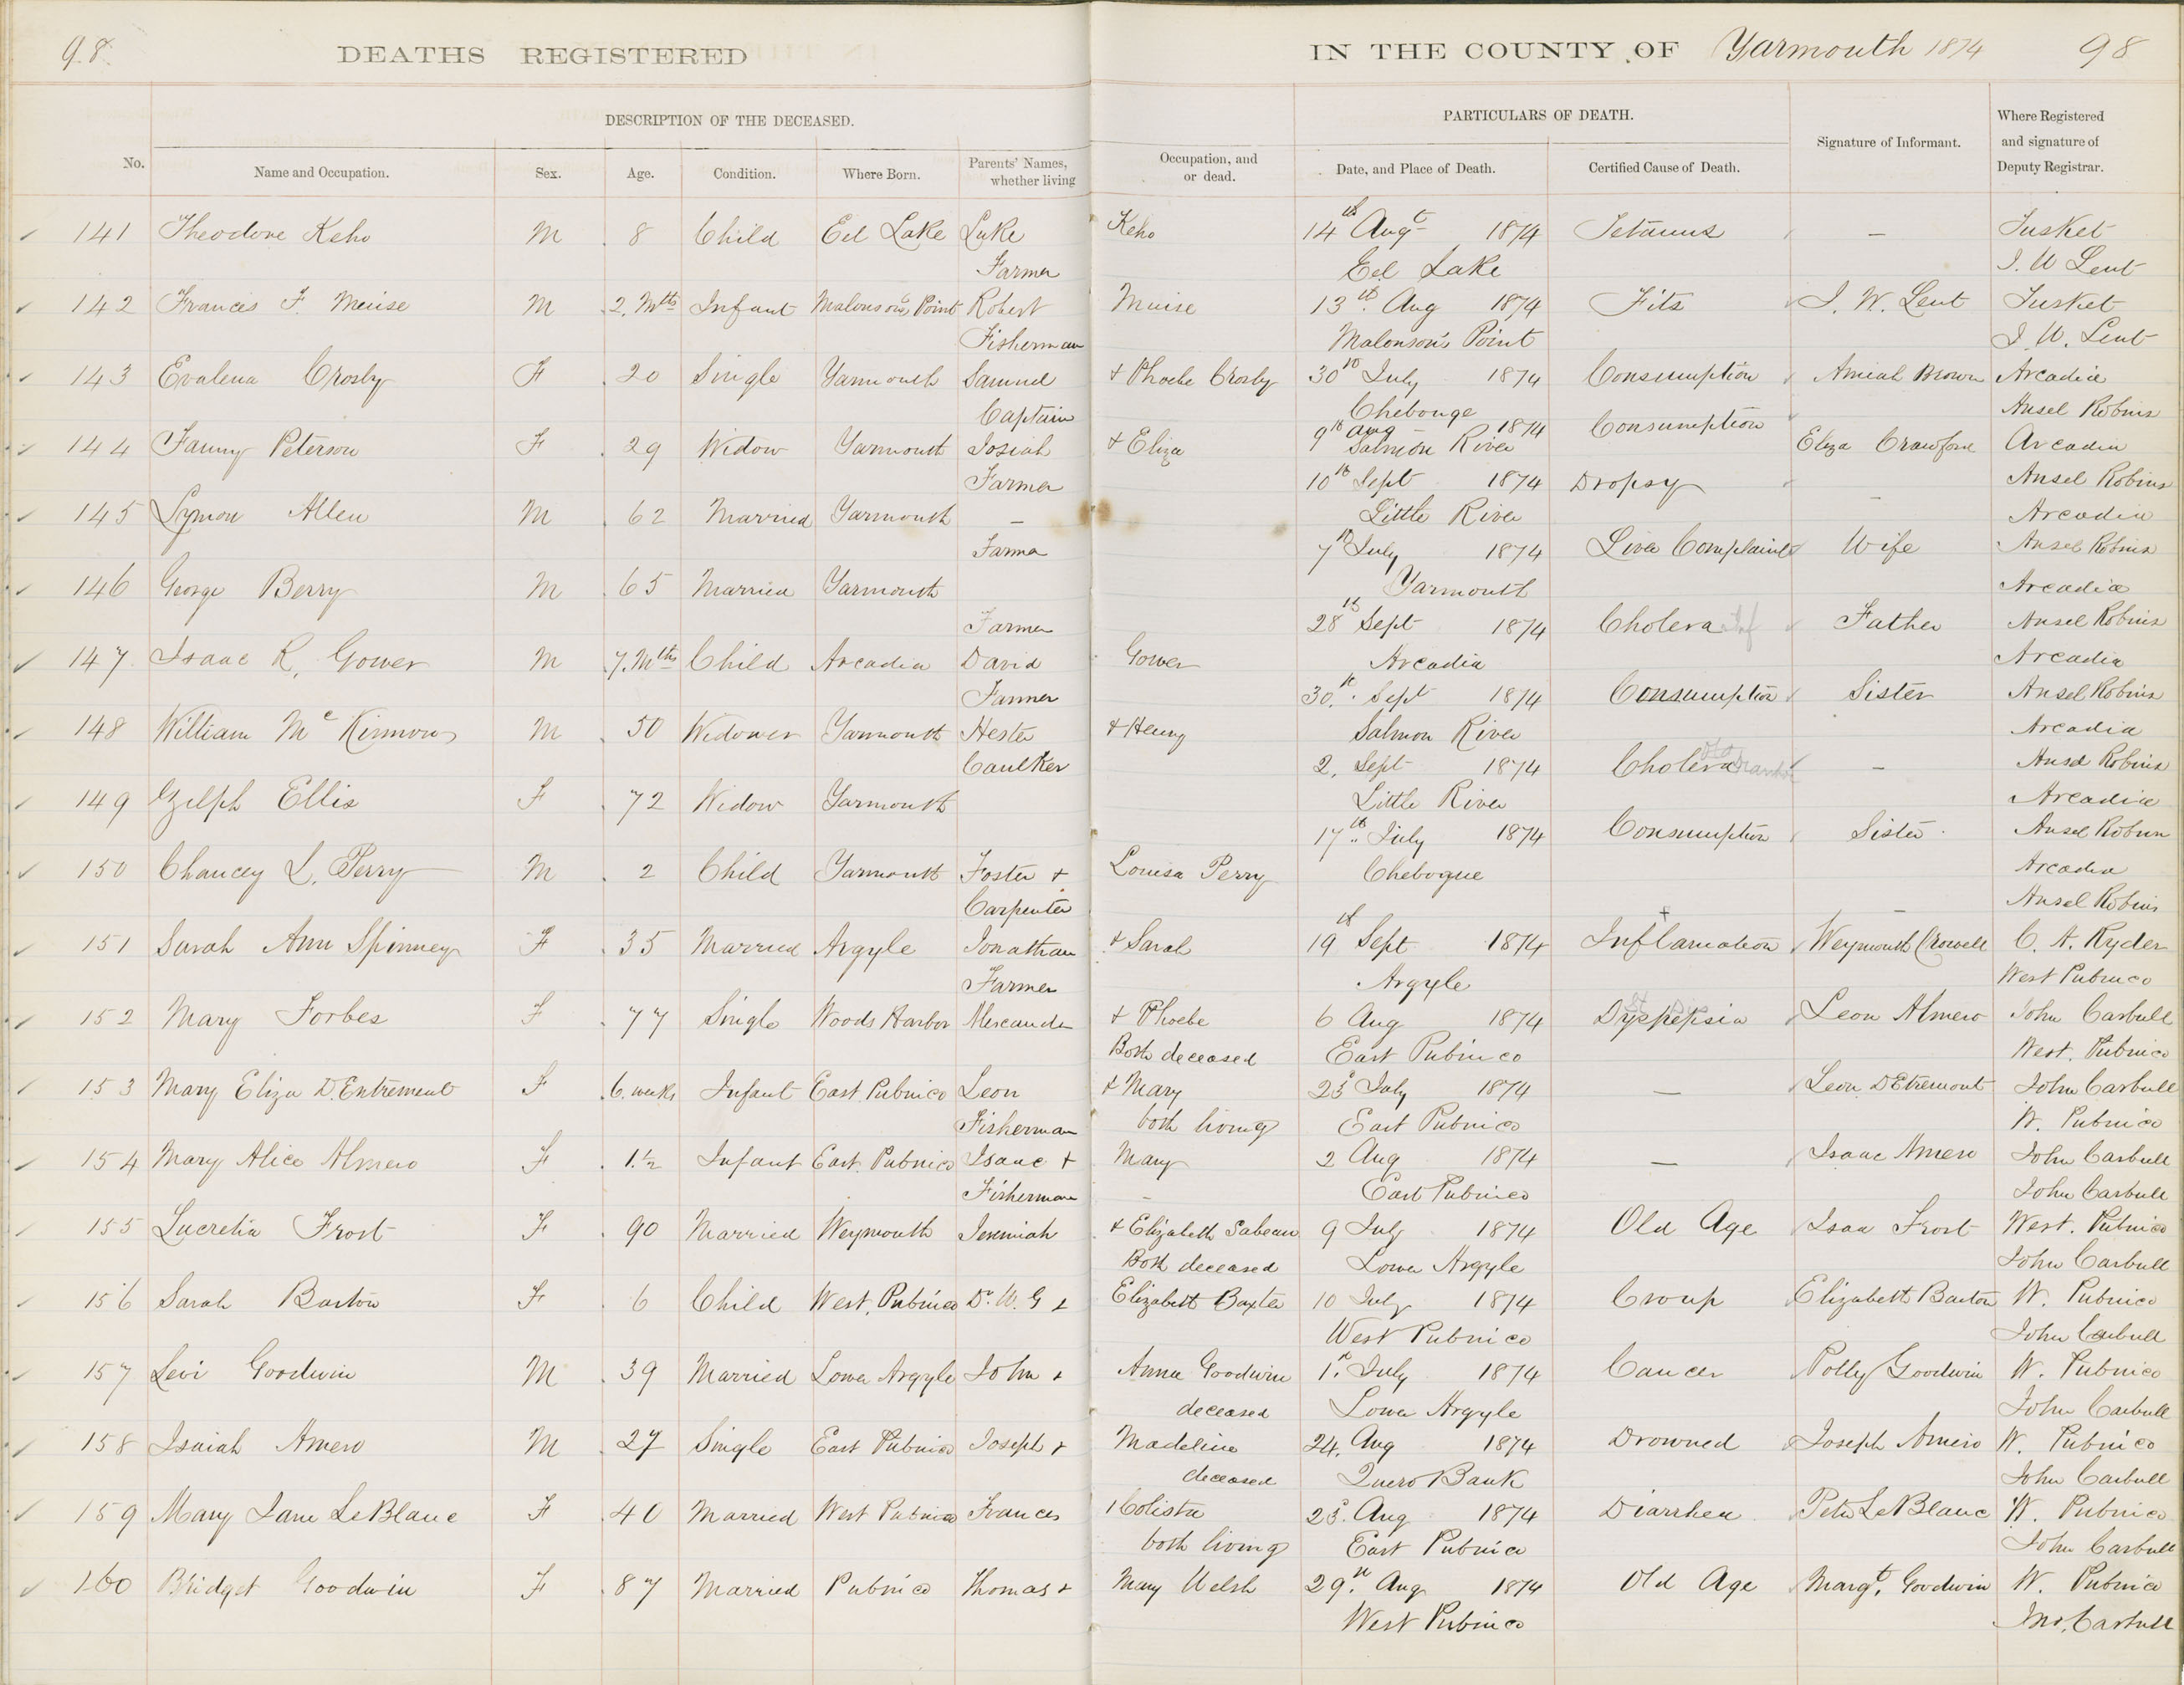 98. DEATHS REGISTERED IN THE COUNTY OF Yarmouth 1874 98
DESCRIPTION OF THE DECEASED. PARTICULARS OF DEATH.
No. Name and Occupation. Sex. Age. Condition. Where Born. Parents' Names, whether living Occupation, and or dead. Date, and Place of Death. Certified Cause of Death. Signature of Informant. Where Registered and signature of Deputy Registrar.
141 Theodore Keho M 8 Child Eel Lake Luke Keho 14th Augt 1874 Tetanus – Tusket
Farmer Eel Lake J. W Lent
142 Frances F. Meuise M 2. Mths Infant Malonsons Point Robert Muise 13th Aug 1874 Fits J. W. Lent Tusket
Fisherman Malonson's Point J. W. Lent
143 Evalena Crosby F 20 Single Yarmouth Samuel & Phoebe Crosby 30th July 1874 Consumption Amiah Brown Arcadia
Captain Chebouge Ansel Robins
9th Aug 1874 Consumption
144 Fanny Peterson F 29 Widow Yarmouth Josiah & Eliza Salmon River Eliza Crawford Arcadia
Farmer 10th Sept 1874 Dropsy Ansel Robins
145 Lymon Allen M 62 Married Yarmouth – Little River – Arcadia
Farmer 7th July 1874 Liver Complaint Wife Ansel Robins
146 George Berry M 65 Married Yarmouth Yarmouth Arcadia
Farmer 28th Sept 1874 Cholera Inf Father Ansel Robins
147 Isaac R. Gower M 7. Mths Child Arcadia David Gower Arcadia Arcadia
Farmer 30th Sept 1874 Consumption Sister Ansel Robins
148 William Mc Kinnon M 50 Widower Yarmouth Hester & Henry Salmon River Arcadia
Caulker 2. Sept 1874 Cholera – Ansel Robins
149 Zilph Ellis F 72 Widow Yarmouth Little River Arcadia
17th July 1874 Consumption Sister Ansel Robins
150 Chancey L. Perry M 2 Child Yarmouth Foster & Louisa Perry Chebogue Arcadia
Carpenter – Ansel Robins
151 Sarah Ann Spinney F 35 Married Argyle Jonathan & Sarah 19th Sept 1874 Inflamation Weymouth Crowell C. A. Ryder
Farmer Argyle West Pubnico
152 Mary Forbes F 77 Single Woods Harbor & Phoebe 6 Aug 1874 Dyspepsia Leon Almero John Carbull
Both deceased East Pubnico West. Pubnico
153 Mary Eliza D. Entremont F 6. weeks Infant East Pubnico Leon & Mary 23d July 1874 – Leon DEtremont John Carbull
Fisherman both living East Pubnico W. Pubnico
154 Mary Alice Almero F 1.½ Infant East. Pubnico Isaac & Mary 2 Aug 1874 – Isaac Amero John Carbull
Fisherman – East Pubnico John Carbull
155 Lucretia Frost F 90 Married Weymouth Jeremiah & Elizabeth Sabean 9 July 1874 Old Age Isaa Frost West. Pubnico
Both deceased Lower Argyle John Carbull
156 Sarah Barton F 6 Child West. Pubnico Dr. W. G & Elizabeth Baxter 10 July 1874 Croup Elizabeth Barton W. Pubnico
West Pubnico John Carbull
157 Levi Goodwin M 39 Married Lower Argyle John & Anna Goodwin 1st July 1874 Cancer Polly Goodwin W. Pubnico
deceased Lower Argyle John Carbull
158 Isaiah Amero M 27 Single East Pubnico Joseph & Madeline 24. Aug 1874 Drowned Joseph Amero W. Pubnico
deceased Quero Bank John Carbull
159 Mary Jane LeBlanc F 40 Married West Pubnico Frances & Colista 23d. Aug 1874 Diarrhea Peter LeBlanc W. Pubnico
both living East Pubnico John Carbull
160 Bridget Goodwin F 87 Married Pubnico Thomas & Mary Welsh 29th Aug 1874 Old Age Margt. Goodwin W. Pubnico
West Pubnico Jno. Carbull